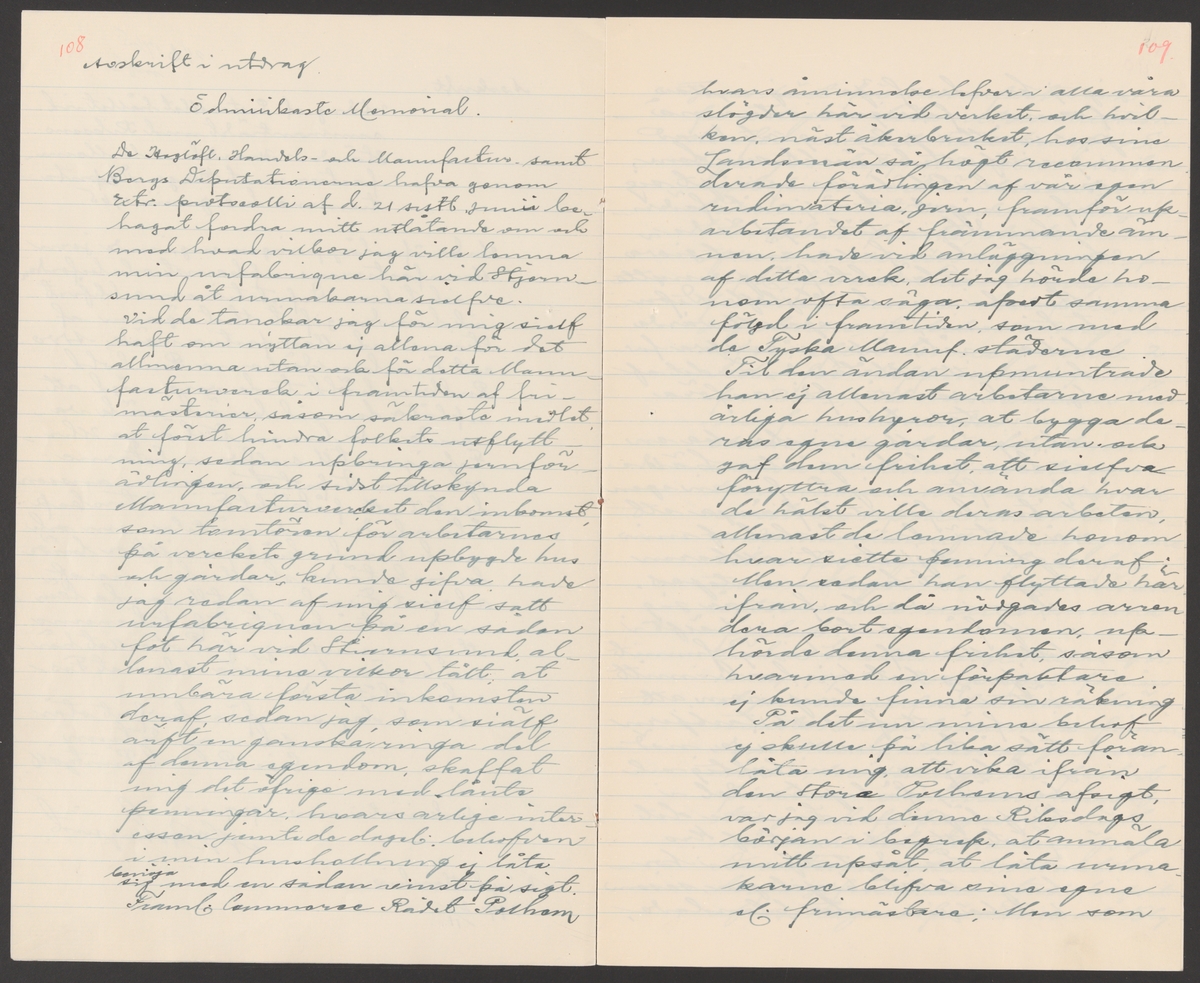 108
Avskrift i utdrag.
Ödmiukaste Memorial.
De Höglöfl. Handels- och Manufactur- samt
Bergs Deputationerne hafva genom
Extr. protocolli af d. 21 sistl. junii be-
hagat fordra mitt utlåtande om och
med hvad vilkor jag ville lemna
min urfabrique här vid Stjern-
sund åt urmakarna sielfve.
Vid de tanckar jag för mig sielf
haft om nyttan ej allena för det
allmenna utan och för detta Manu-
facturverck i framtiden af fri-
mästerier, såsom säkraste medlet,
at först hindra folkets utflytt-
ning, sedan upbringa jernför-
ädlingen, och sidst tillskynda
Manufacturvercket den inkomst,
som tomtören för arbetarnes
på verckets grund upbygde hus
och gårdar, kunde gifva, hade
jag redan af mig sielf satt
urfabriquen på en sådan
fot här vid Stiernsund, al-
lenast mine vilkor tålt, at
umbära första inkomsten
deraf, sedan jag, som sielf
ärft en ganska ringa del
af denna egendom, skaffat
mig det öfrige med lånte
penningar, hvars årlige inter-
essen jemte de dagel: behofven
i min hushollning ej låta
benöja
sig med en sådan vinst på sigt.
Framl: Commerce Rådet Polhem
109
hvars åminnelse lefver i alla våra
slögder här vid verket, och hvil-
ken, näst åkerbruket, hos sine
Landsmän så högt recommen
derade förädlingen af vår egen
rudimateria, jern, framför up-
arbetandet af främmande äm-
nen, hade vid anläggningen
af detta verck, det jag hörde ho-
nom ofta säga, afsedt samma
följd i framtiden, som med
de Tyska Manuf. städerne
Til den ändan upmuntrade
han ej allenast arbetarne med
årliga hushyror, at bygga de-
ras egne gårdar, utan och
gaf dem frihet, att sielfva
föryttra och använda hvar
de hälst ville deras arbeten,
allenast de lemnade honom
hvar siette penning deraf;
Men sedan han flyttade här
ifrån, och då nödgades arren
dera bort egendomen, up-
hörde denna frihet, såsom
hvarmed en förpaktare
ej kunde finna sin räkning
På det nu mine behof
ej skulle på lika sätt föran-
låta mig, att vika ifrån
den store Polhems afsigt,
var jag vid denne Riksdags
början i begrep, at anmäla
mitt upsåt, at låta urma-
karne blifva sine egne
el: frimästare; Men som